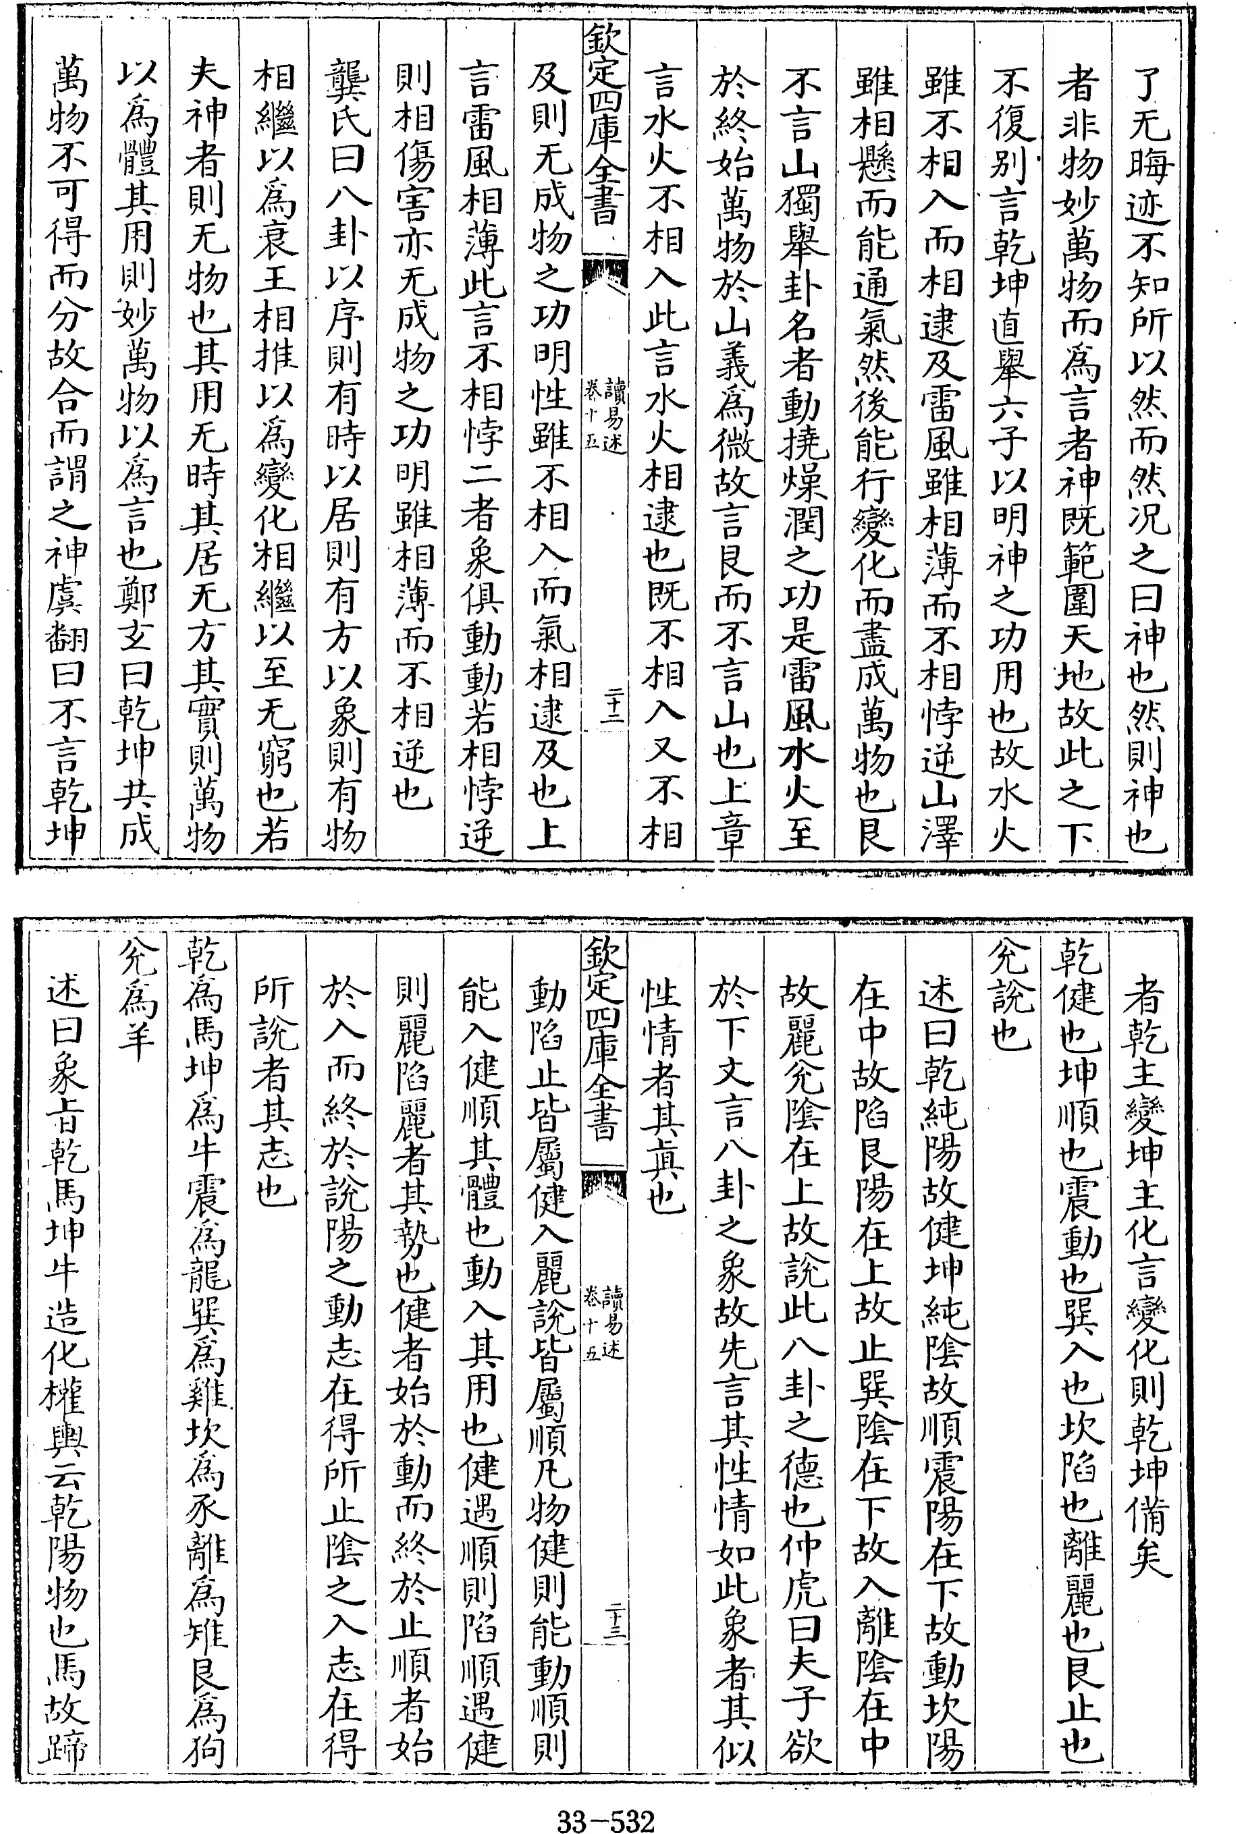 了无晦迹不知所以然而然况之曰神也然則神也
者非物妙萬物而爲言者神既範圍天地故此之下
不復别言乾坤直舉六子以明神之功用也故水火
雖不相入而相逮及雷風雖相薄而不相悖逆山澤
雖相懸而能通氣然後能行變化而盡成萬物也艮
不言山獨舉卦名者動撓燥潤之功是雷風水火至
於終始萬物於山義爲微故言艮而不言山也上章
言水火不相入此言水火相逮也既不相入又不相
欽定四庫全書
讀易述
卷十五
二十二
及則无成物之功明性雖不相入而氣相逮及也上
言雷風相薄此言不相悖二者象俱動動若相悖逆
則相傷害亦无成物之功明雖相薄而不相逆也
龔氏曰八卦以序則有時以居則有方以象則有物
相繼以爲衰王相推以爲變化相繼以至无窮也若
夫神者則无物也其用无時其居无方其實則萬物
以爲體其用則妙萬物以爲言也鄭玄曰乾坤共成
萬物不可得而分故合而謂之神虞翻曰不言乾坤
者乾主變坤主化言變化則乾坤備矣
乾健也坤順也震動也巽入也坎陷也離麗也艮止也
兊說也
述曰乾純陽故健坤純陰故順震陽在下故動坎陽
在中故陷艮陽在上故止巽陰在下故入離陰在中
故麗兊陰在上故說此八卦之德也仲虎曰夫子欲
於下文言八卦之象故先言其性情如此象者其似
性情者其真也
欽定四庫全書
讀易述
卷十五
二十三
動陷止皆屬健入麗說皆屬順凡物健則能動順則
能入健順其體也動入其用也健遇順則陷順遇健
則麗陷麗者其勢也健者始於動而終於止順者始
於入而終於說陽之動志在得所止陰之入志在得
所說者其志也
乾爲馬坤爲牛震爲龍巽爲雞坎爲豕離爲雉艮爲狗
兊爲羊
述曰象旨乾馬坤牛造化權輿云乾陽物也馬故蹄
33-532